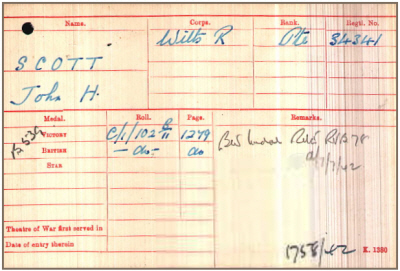 Name. Corps. Rank. Regtl. No.
Wilts R Pte 34341
SCOTT
John H.
Medal. Roll. Page. Remarks.
VICTORY C/1/102 B 11 1279
BRITISH — do — do
STAR
Theatre of War first served in
Date of entry therein
1758/42 K. 1380